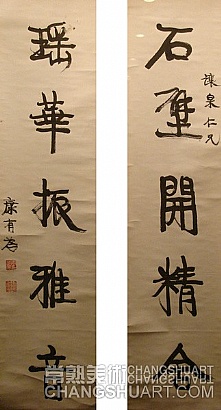 石壁開精舍
泉仁兄
瑶華振雅音
康有為
常熟美術 CHANGSHUART
CHANGSHUART.COM